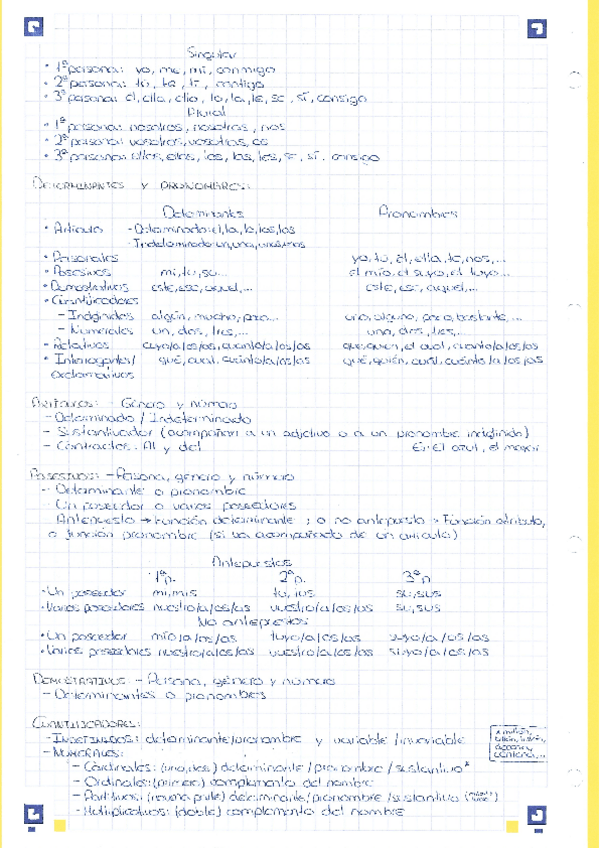 Singular
• 1ª persona: yo, me, mí, conmigo
• 2ª persona: tú, te, ti, contigo
• 3ª persona: él, ella, ello, lo, la, le, se, sí, consigo
Plural
• 1ª persona: nosotros, nosotras, nos
• 2ª persona: vosotros, vosotras, os
• 3ª persona: ellos, ellas, los, las, les, se, sí, consigo
DETERMINANTES Y PRONOMBRES:
Determinantes Pronombres
• Artículo - Determinado: el, la, lo, los, las
- Indeterminado: un, una, unos, unas
• Personales yo, tú, él, ella, te, nos, ...
• Posesivos mi, tu, su... el mío, el suyo, el tuyo...
• Demostrativos este, ese, aquel, ... este, ese, aquel, ...
• Cuantificadores
- Indefinidos algún, mucho, poco... uno, alguno, poco, bastante, ...
- Numerales un, dos, tres, ... uno, dos, tres, ...
• Relativos cuyo/a/os/as, cuanto/a/os/as que, quien, el cual, cuanto/a/os/as
• Interrogantes/ qué, cuál, cuánto/a/os/as qué, quién, cuál, cuánto/a/os/as
exclamativos
ARTÍCULOS: - Género y número
- Determinado / Indeterminado
- Sustantivador (acompañan a un adjetivo o a un pronombre indefinido)
- Contractos: Al y del Ej: El azul, el mayor
POSESIVOS: - Persona, género y número
- Determinante o pronombre
- Un poseedor o varios poseedores
Antepuesto → Función determinante; o no antepuesto → Función atributo,
o función pronombre (si va acompañado de un artículo)
Antepuestos
1ª p. 2ª p. 3ª p.
• Un poseedor mi, mis tu, tus su, sus
• Varios poseedores nuestro/a/os/as vuestro/a/os/as su, sus
No antepuestos
• Un poseedor mío/a/os/as tuyo/a/os/as suyo/a/os/as
• Varios poseedores nuestro/a/os/as vuestro/a/os/as suyo/a/os/as
DEMOSTRATIVOS: - Persona, género y número
- Determinantes o pronombres
CUANTIFICADORES:
- INDEFINIDOS: determinante/pronombre y variable/invariable
- NUMERALES:
- Cardinales: (uno, dos) determinante / pronombre / sustantivo*
- Ordinales: (primero) complemento del nombre
- Partitivos: determinante/pronombre/sustantivo
- Multiplicativos: (doble) complemento del nombre
* millón,
billón, trillón,
docena,
centena, ...